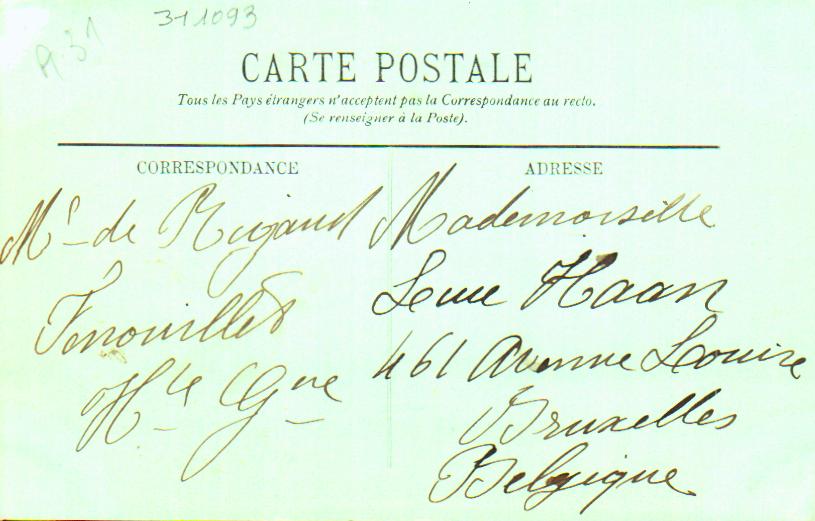 A. 31
311093
CARTE POSTALE
Tous les Pays étrangers n'acceptent pas la Correspondance au recto.
(Se renseigner à la Poste).
CORRESPONDANCE
Ms de Rigaud
Fenouillet
Hte Gne
ADRESSE
Mademoiselle
Haan
461 Avenue Louise
Bruxelles
Belgique